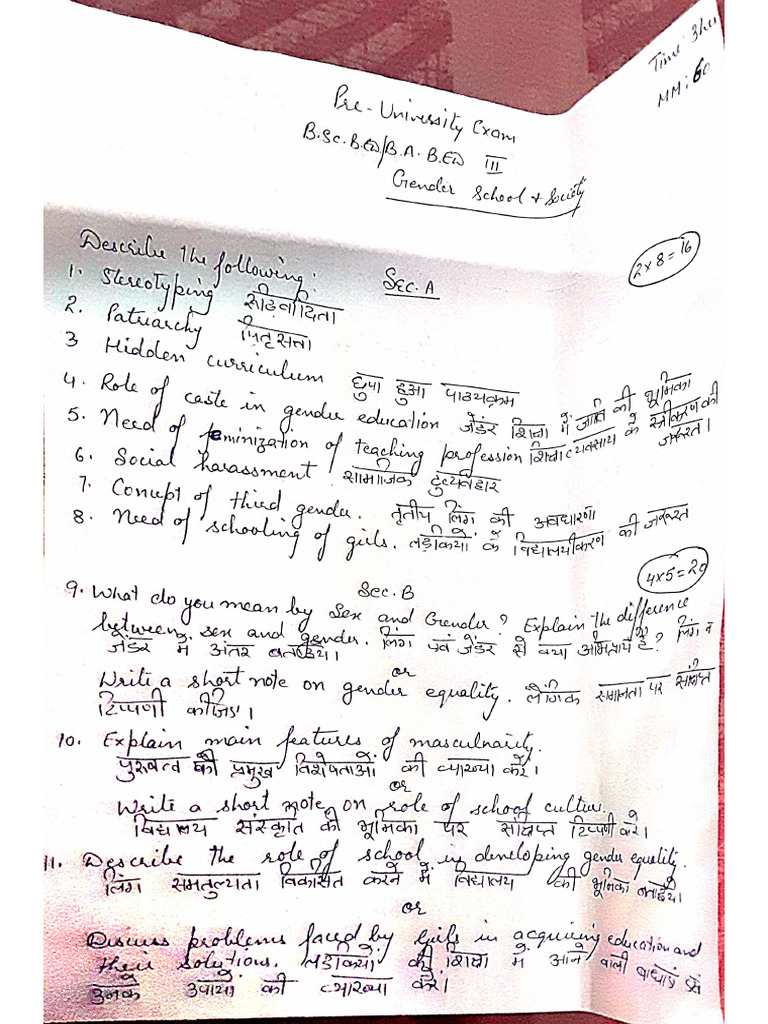 Time: 3hr
MM: 60
Pre-University Exam
B.Sc.B.ED/B.A.B.ED III
Gender School & Society
Describe the following: Sec. A 2x8=16
1. Stereotyping रूढ़िवादिता
2. Patriarchy पितृसत्ता
3 Hidden curriculum छुपा हुआ पाठ्यक्रम
4. Role of caste in gender education जेंडर शिक्षा में जाति की भूमिका
5. Need of feminization of teaching profession शिक्षा व्यवसाय के स्त्रीकरण की जरूरत।
6. Social harassment. सामाजिक दुर्व्यवहार
7. Concept of third gender. तृतीय लिंग की अवधारणा
8. Need of schooling of girls. लड़कियों के विद्यालयीकरण की जरूरत
Sec. B 4x5=20
9. What do you mean by Sex and Gender? Explain the difference
between sex and gender. लिंग एवं जेंडर से क्या अभिप्राय है? लिंग व
जेंडर में अंतर बताइये।
or
Write a short note on gender equality. लैंगिक समानता पर संक्षिप्त
टिप्पणी कीजिए।
10. Explain main features of masculnarity.
पुरुषत्व की प्रमुख विशेषताओं की व्याख्या करें।
or
Write a short note on role of school culture.
विद्यालय संस्कृति की भूमिका पर संक्षिप्त टिप्पणी करें।
11. Describe the role of school in developing gender equality.
लिंग समतुल्यता विकसित करने में विद्यालय की भूमिका बताइये।
or
Discuss problems faced by Girls in acquiring education and
their solutions. लड़कियों की शिक्षा में आने वाली बाधाएं एवं
उनके उपायों की व्याख्या करें।